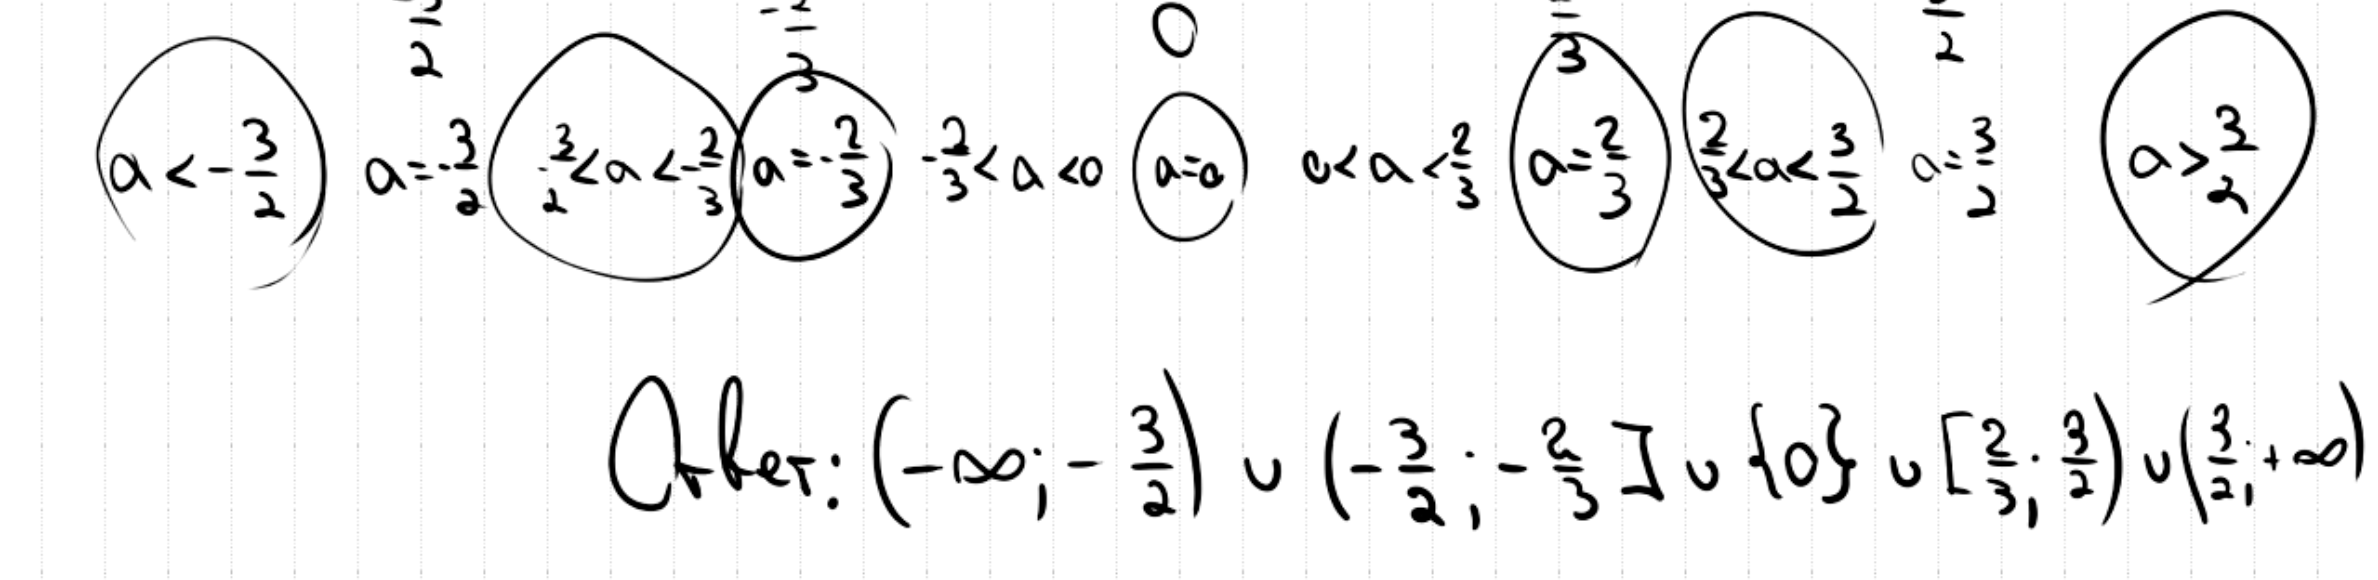 -3/2 -2/3 0 2/3 3/2
a < -3/2 a = -3/2 -3/2 < a < -2/3 a = -2/3 -2/3 < a < 0 a = 0 0 < a < 2/3 a = 2/3 2/3 < a < 3/2 a = 3/2 a > 3/2
Ответ: (-∞; -3/2) ∪ (-3/2; -2/3] ∪ {0} ∪ [2/3; 3/2) ∪ (3/2; +∞)